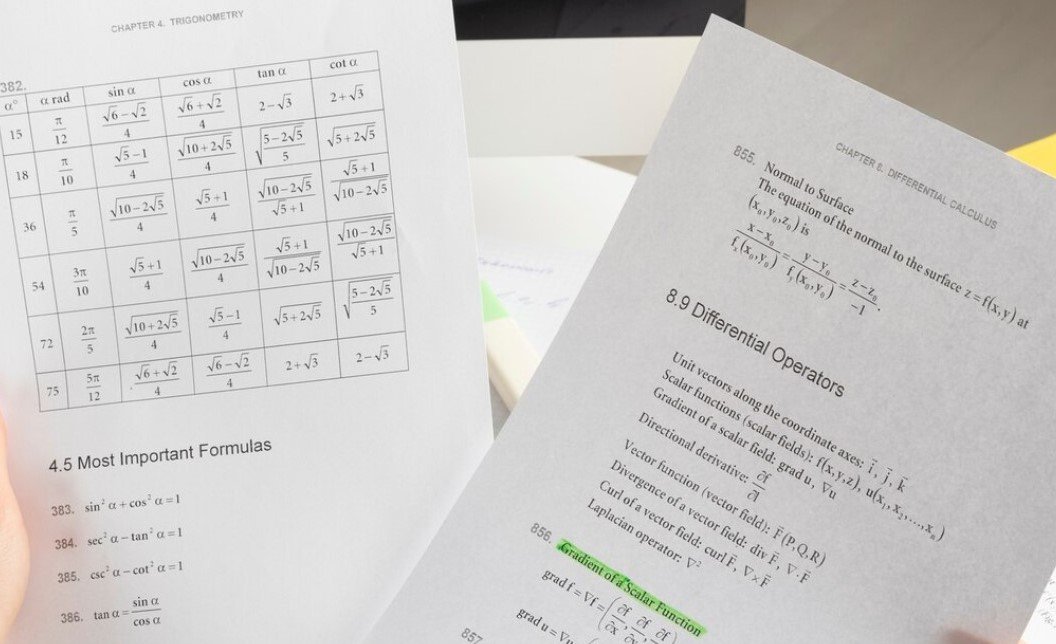 CHAPTER 4. TRIGONOMETRY
382.
α° α rad sin α cos α tan α cot α
15 π/12 (√6−√2)/4 (√6+√2)/4 2−√3 2+√3
18 π/10 (√5−1)/4 √(10+2√5)/4 √((5−2√5)/5) √(5+2√5)
36 π/5 √(10−2√5)/4 (√5+1)/4 √(10−2√5)/(√5+1) (√5+1)/√(10−2√5)
54 3π/10 (√5+1)/4 √(10−2√5)/4 (√5+1)/√(10−2√5) √(10−2√5)/(√5+1)
72 2π/5 √(10+2√5)/4 (√5−1)/4 √(5+2√5) √((5−2√5)/5)
75 5π/12 (√6+√2)/4 (√6−√2)/4 2+√3 2−√3
4.5 Most Important Formulas
383. sin² α + cos² α = 1
384. sec² α − tan² α = 1
385. csc² α − cot² α = 1
386. tan α = sin α / cos α
CHAPTER 8. DIFFERENTIAL CALCULUS
855. Normal to Surface
The equation of the normal to the surface z = f(x, y) at
(x₀, y₀, z₀) is
(x−x₀)/fₓ(x₀, y₀) = (y−y₀)/fᵧ(x₀, y₀) = (z−z₀)/−1.
8.9 Differential Operators
Unit vectors along the coordinate axes: i⃗, j⃗, k⃗
Scalar functions (scalar fields): f(x, y, z), u(x₁, x₂, ..., xₙ)
Gradient of a scalar field: grad u, ∇u
Directional derivative: ∂f/∂l
Vector function (vector field): F⃗(P, Q, R)
Divergence of a vector field: div F⃗, ∇·F⃗
Curl of a vector field: curl F⃗, ∇×F⃗
Laplacian operator: ∇²
856. Gradient of a Scalar Function
grad f = ∇f = (∂f/∂x, ∂f/∂y, ∂f
grad u = ∇u
857